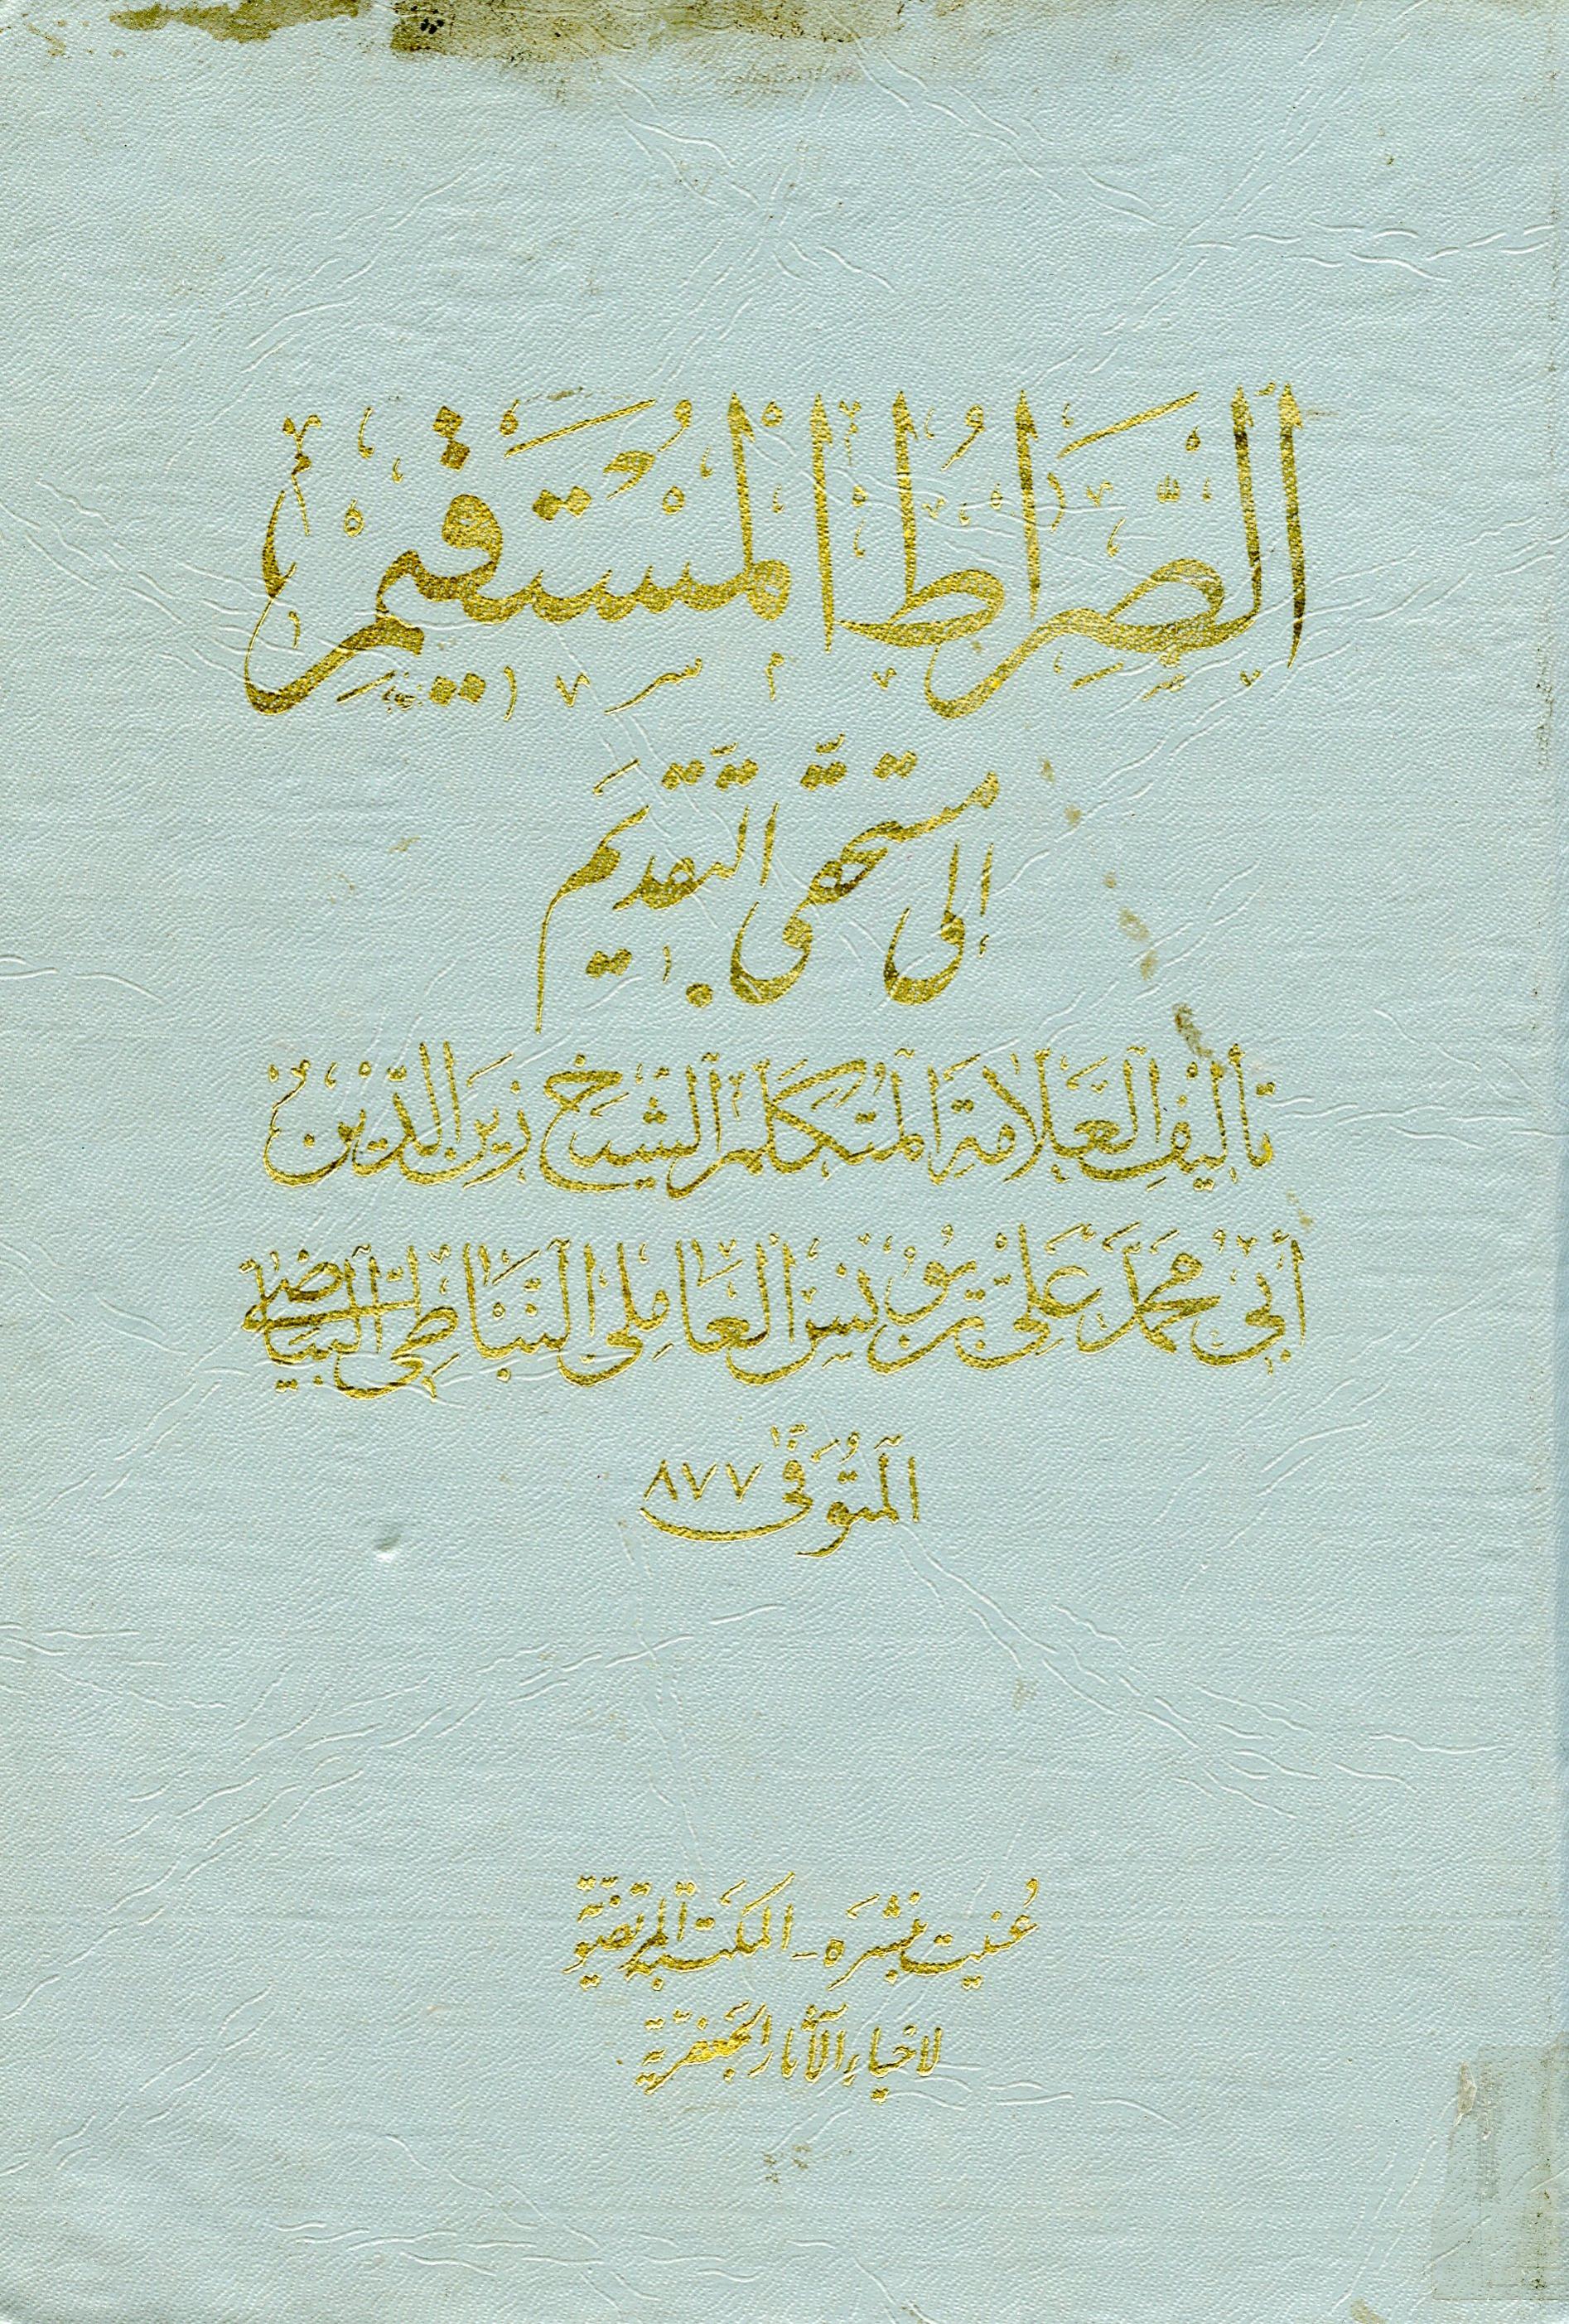 الصِّرَاطُ الْمُسْتَقِيم
إلى مستحقّى التَّقديَم
تأليف العَلّامة المتكلم الشيخ زين الدّين
أبي محمّد عَلىّ بن يُونس العَاملي النَباطي البَياضي
المتُوَفّى ٨٧٧
عُنيت بنشره - المكتبة المرتضويّة
لاحياء الآثار الجعفريّة